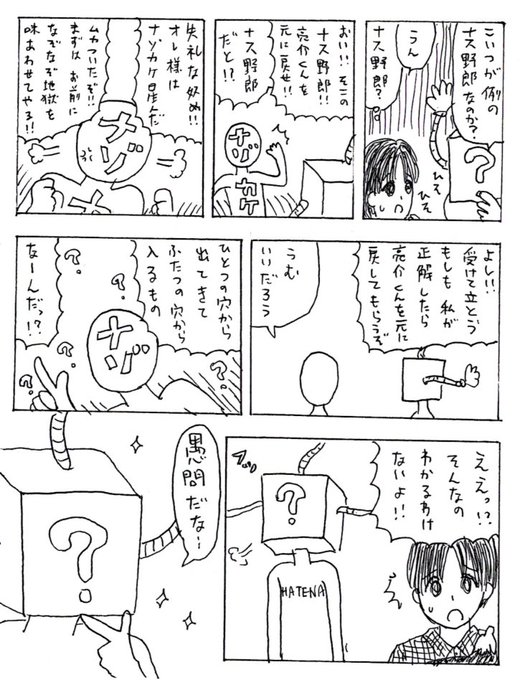 こいつが例の
ナス野郎なのか?
うん
ナス野郎?
ひそ
ひそ
?
おい!!そこの
ナス野郎!!
亮介くんを
元に戻せ!!
ナス野郎
だと!?
ナゾ
カケ
失礼な奴め!!
オレ様は
ナゾカケ星人だ
ムカついたぞ!!
まずはお前に
なぞなぞ地獄を
味あわせてやる!!
ナゾ
よし!!
受けて立とう
もしも私が
正解したら
亮介くんを元に
戻してもらうぞ
うむ
いいだろう
ひとつの穴から
出てきて
ふたつの穴から
入るもの
なーんだっ!?
?
?
?
?
?
?
ナゾ
ええっ!?
そんなの
わかるわけ
ないよ!!
?
HATENA
愚問だな…
?